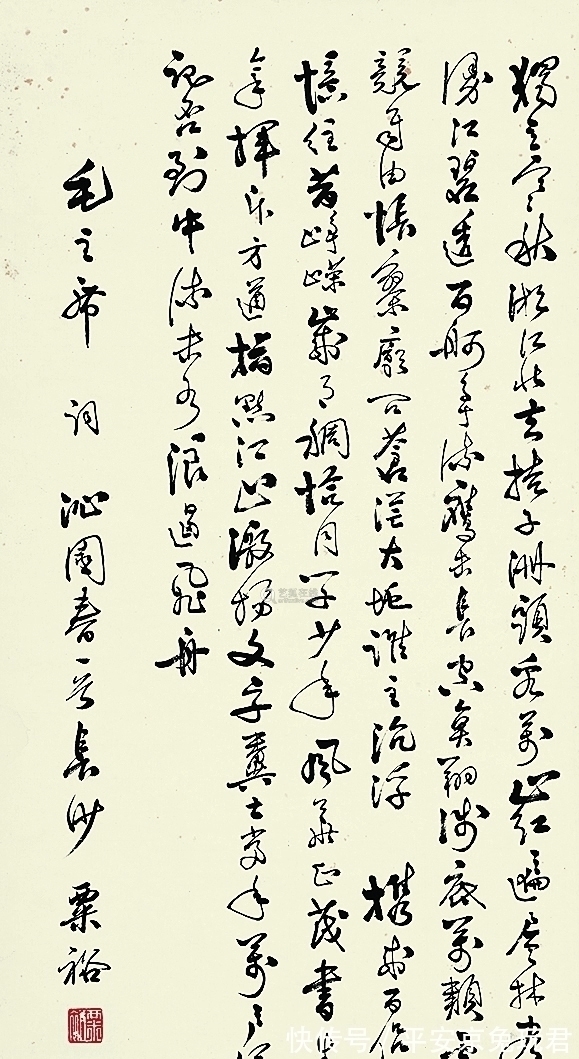 獨立寒秋湘江北去橘子洲頭看萬山紅遍層林
漫江碧透百舸爭流鷹擊長空魚翔淺底萬類
競自由悵寥廓問蒼茫大地誰主沉浮 攜來百侶
憶往昔崢嶸歲月稠恰同學少年風華正茂書
氣揮斥方遒指點江山激揚文字糞土當年萬戶侯
記否到中流擊水浪遏飛舟
毛主席詞 沁園春一首長沙 粟裕
快传号